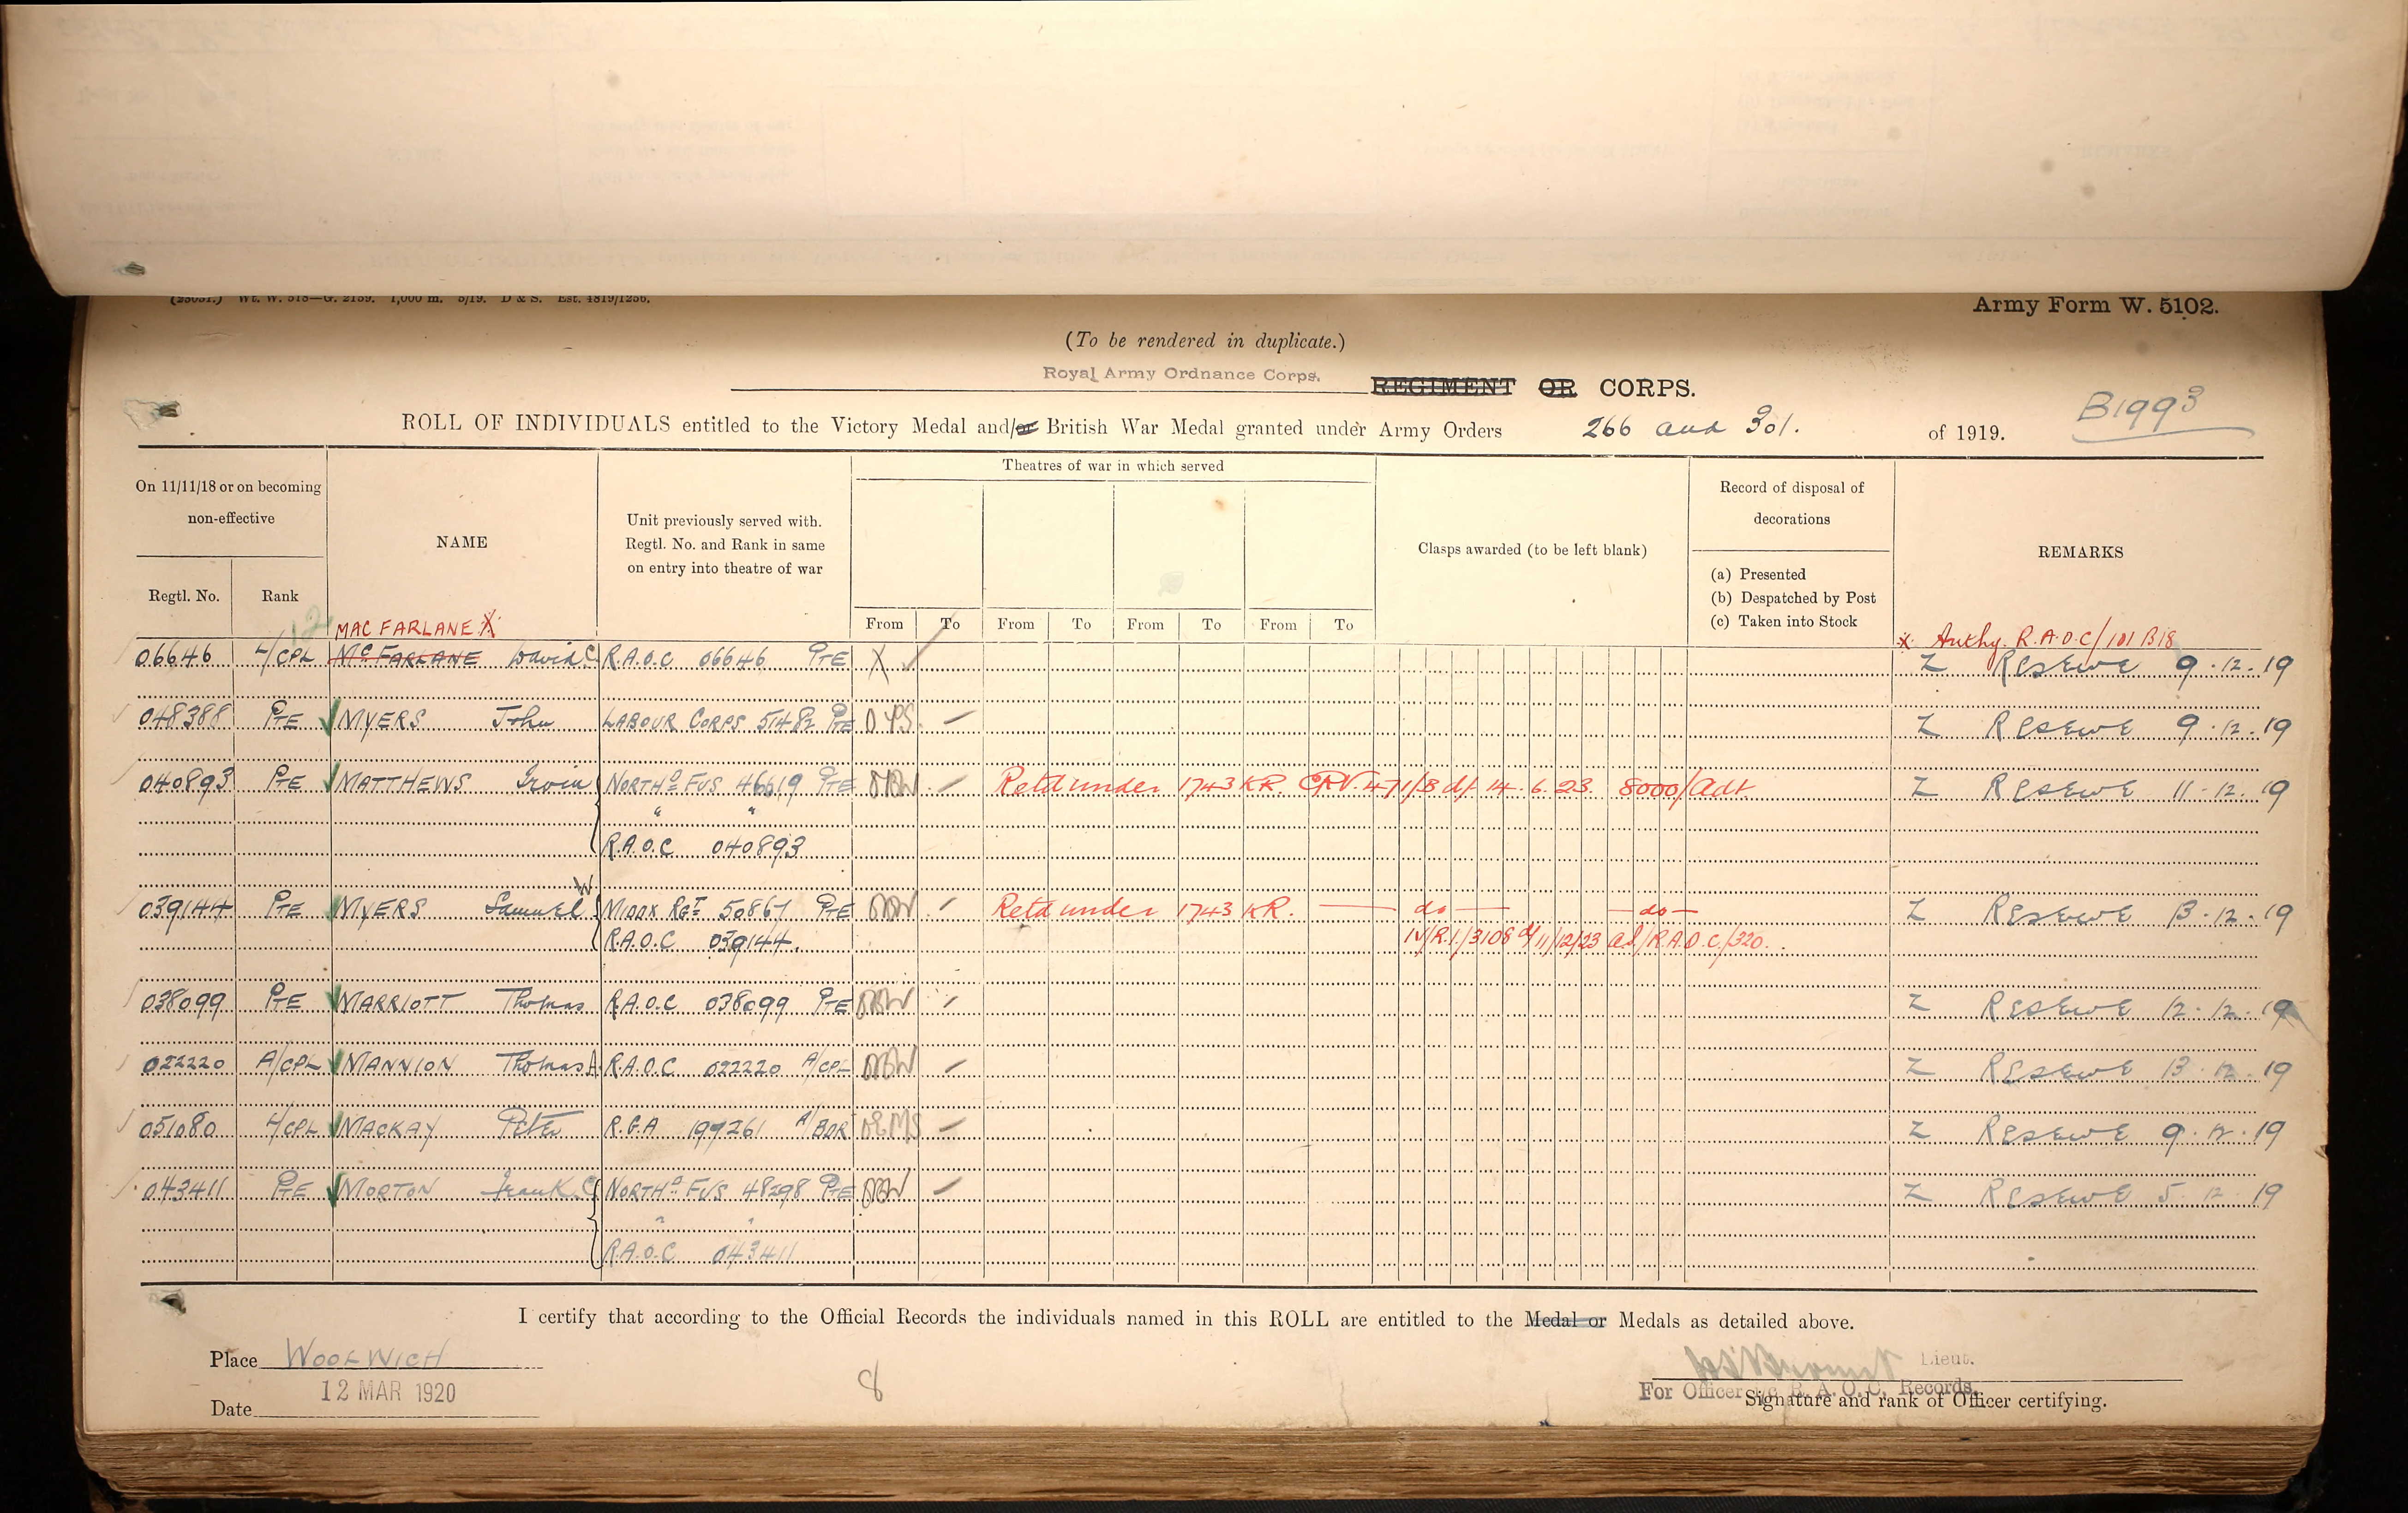 (25031.) Wt. W. 518—G. 2159. 1,000 m. 5/19. D & S. Est. 4819/1256.
Army Form W. 5102.
(To be rendered in duplicate.)
Royal Army Ordnance Corps.
REGIMENT OR CORPS.
B1993
ROLL OF INDIVIDUALS entitled to the Victory Medal and/or British War Medal granted under Army Orders 266 and 301. of 1919.
On 11/11/18 or on becoming non-effective
Regtl. No. Rank
NAME
Unit previously served with. Regtl. No. and Rank in same on entry into theatre of war
Theatres of war in which served
From To From To From To From To
Clasps awarded (to be left blank)
Record of disposal of decorations
(a) Presented
(b) Despatched by Post
(c) Taken into Stock
REMARKS
MAC FARLANE X
X Authy. R.A.O.C/101 B18
06646 L/CPL McFARLANE David C R.A.O.C 06646 PTE X Z RESERVE 9.12.19
048388 PTE MYERS John LABOUR CORPS 51482 PTE Z RESERVE 9.12.19
040893 PTE MATTHEWS Irvin NORTHD FUS 46619 PTE Retd under 1743 KR. 471/B d/ 14.6.23 8000/Adt Z RESERVE 11.12.19
" "
R.A.O.C 040893
039144 PTE MYERS Samuel W MIDDX RGT 50867 PTE Retd under 1743 KR. — do — — do — Z RESERVE 13.12.19
R.A.O.C 039144 IV/R.1./3108 d/11/12/23 ad/R.A.O.C./320.
038099 PTE MARRIOTT Thomas R.A.O.C 038099 PTE Z RESERVE 12.12.19
022220 A/CPL MANNION Thomas A R.A.O.C 022220 A/CPL Z RESERVE 13.12.19
051080 L/CPL MACKAY Peter R.G.A 199261 A/BDR Z RESERVE 9.12.19
043411 PTE MORTON Frank C NORTHD FUS 48298 PTE Z RESERVE 5.12.19
" "
R.A.O.C 043411
I certify that according to the Official Records the individuals named in this ROLL are entitled to the Medal or Medals as detailed above.
Place WOOLWICH
Date 12 MAR 1920
8
Lieut.
For Officer i/c R. A. O. C. Records.
Signature and rank of Officer certifying.